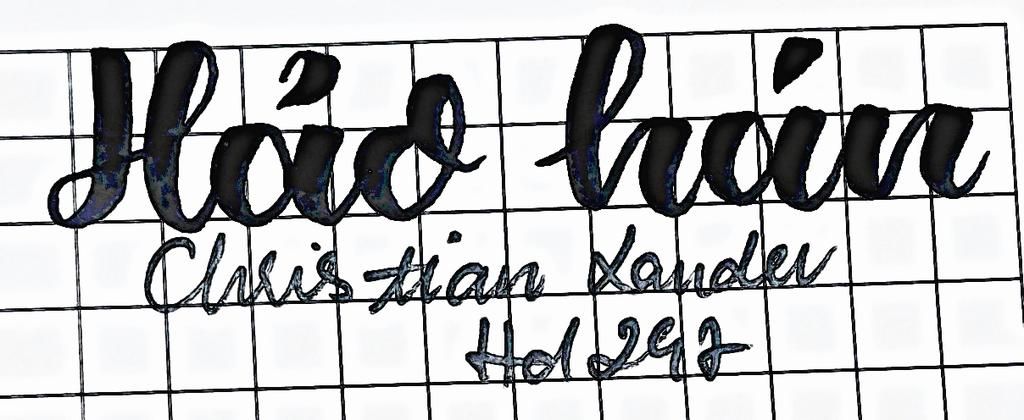 Hảo hán
Christian Xander
Hol 297